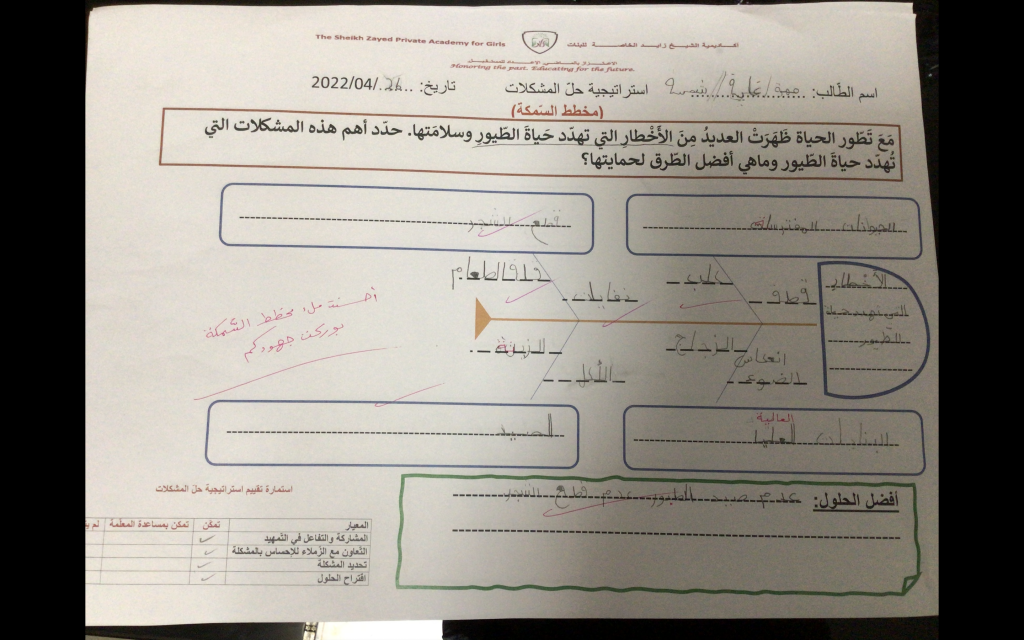 The Sheikh Zayed Private Academy for Girls
أكاديمية الشيخ زايد الخاصة للبنات
Honoring the past. Educating for the future.
اسم الطّالب: استراتيجية حلّ المشكلات تاريخ: 2022/04/26
(مخطط السّمكة)
مَعَ تَطَور الحياة ظَهَرَتْ العديدُ مِنَ الأَخْطارِ التي تهدّد حَياةَ الطّيورِ وسلامَتها. حدّد أهم هذه المشكلات التي
تُهدّد حياةَ الطّيور وماهي أفضل الطّرق لحمايتها؟
الحيوانات المفترسة
قطع الشجر
الأخطار
التي تهدد حياة
الطيور
قطة
كلب
نفايات
انعكاس
الضوء
الزجاج
الأكل
الزينة
أحسنت ملء مخطط السّمكة
بوركت جهودكم
البنايات العليا
العالية
الصيد
أفضل الحلول: عدم صيد الطيور عدم قطع الشجر
استمارة تقييم استراتيجية حلّ المشكلات
المعيار تمكّن تمكن بمساعدة المعلّمة
المشاركة والتفاعل في التّمهيد
التّعاون مع الزّملاء للإحساس بالمشكلة
تحديد المشكلة
اقتراح الحلول